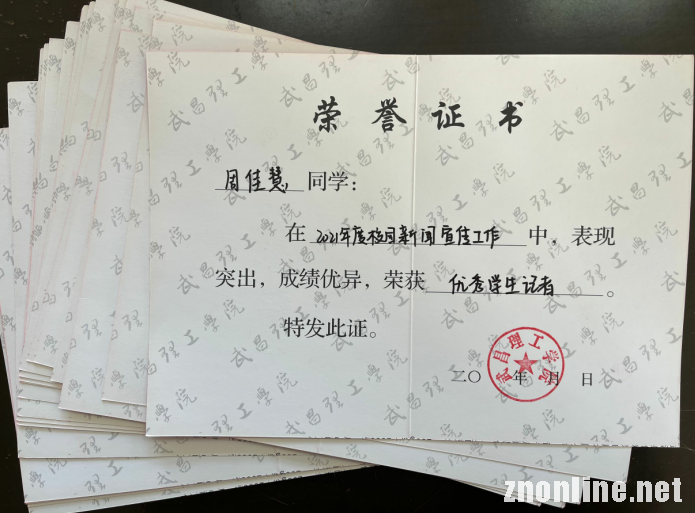 荣誉证书
周佳慧 同学：
在 2021年度校园新闻宣传工作 中，表现
突出，成绩优异，荣获 优秀学生记者 。
特发此证。
武昌理工学院
二〇 年 月 日
武昌理工學院
znonline.net